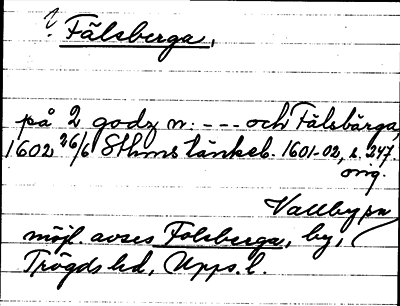 ? Fälsberga,
på 2 godz n: --- och Fälsbärga,
1602 26/6 Sthms tänkeb. 1601-02, s. 247.
orig.
Vallby sn
möjl. avses Folsberga, by,
Trögds hd, Upps. l.